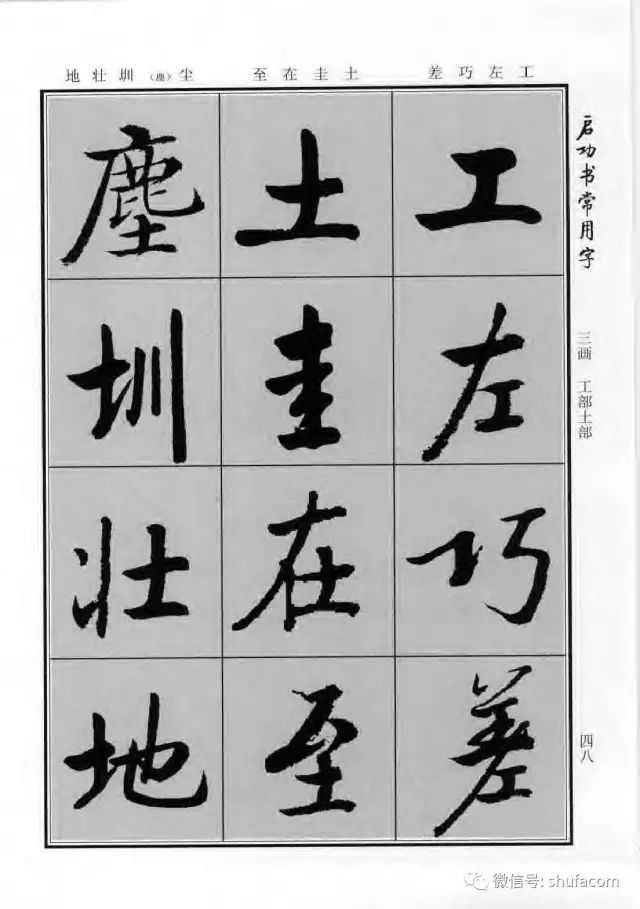 启功书常用字
三画 工部土部
四八
工左巧差
土圭在至
尘(塵)圳壮地
工
左
巧
差
土
圭
在
至
塵
圳
壮
地
微信号: shufacom